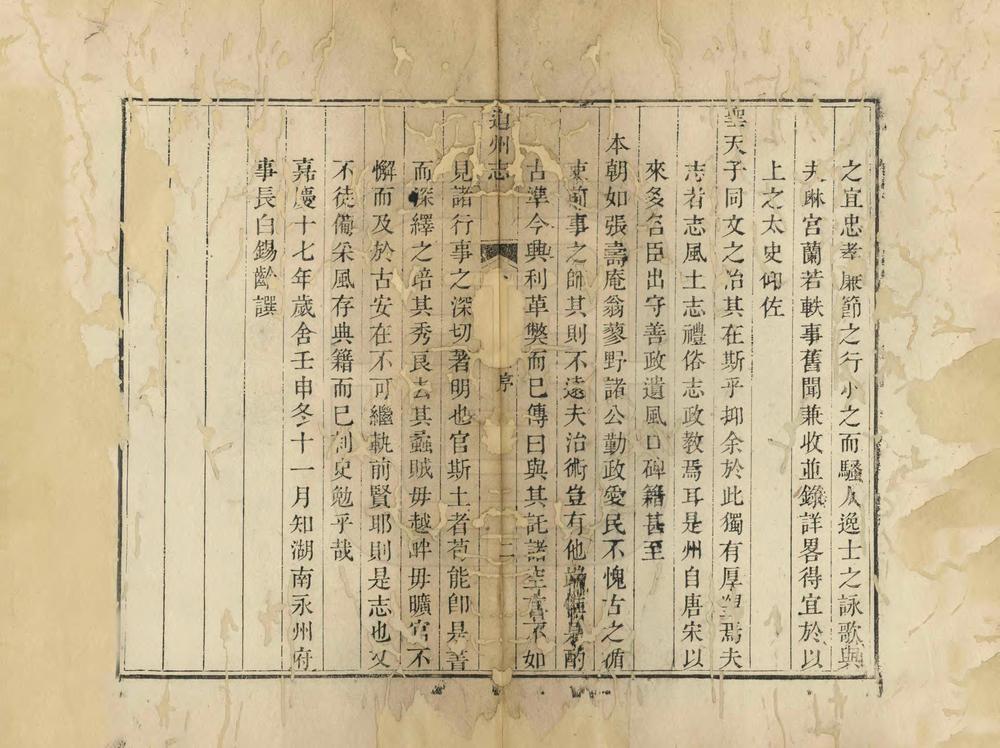 之宜忠孝廉節之行小之而騷人逸士之詠歌與
夫琳宮蘭若軼事舊聞兼收並錄詳畧得宜於以
上之太史仰佐
聖天子同文之治其在斯乎抑余於此獨有厚望焉夫
志者志風土志禮俗志政教焉耳是州自唐宋以
來多名臣出守善政遺風口碑籍甚至
本朝如張壽庵翁蓼野諸公勤政愛民不愧古之循
吏前事之師其則不遠夫治術豈有他端酌
古準今興利革獘而已傳曰與其託諸空言不如
道州志
序
二
見諸行事之深切著明也官斯土者苟能卽是善
而深繹之培其秀良去其蟊賊毋越畔毋曠官不
懈而及於古安在不可繼軌前賢耶則是志也又
不徒備采風存典籍而已刺史勉乎哉
嘉慶十七年歲舍壬申冬十一月知湖南永州府
事長白錫齡譔